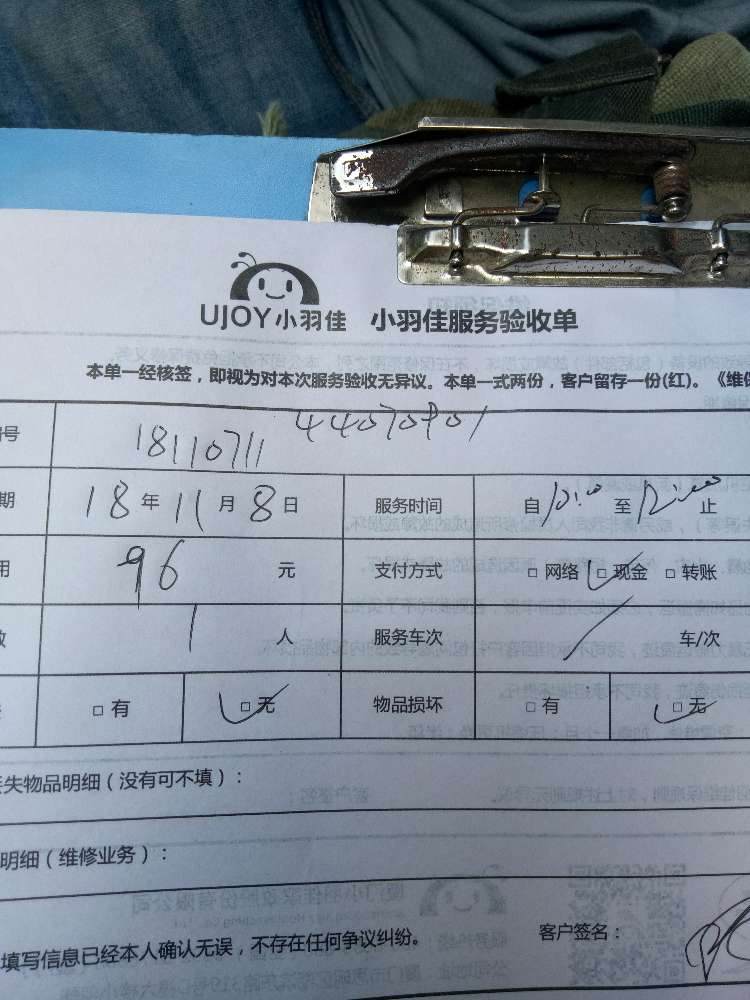 UJOY小羽佳 小羽佳服务验收单
本单一经核签，即视为对本次服务验收无异议。本单一式两份，客户留存一份(红)。《维
号 18110711 44070901
期 18年11月8日 服务时间 自10:00至12:00止
用 96 元 支付方式 □网络 □现金 □转账
1 人 服务车次 / 车/次
□有 □无 物品损坏 □有 □无
失物品明细（没有可不填）：
明细（维修业务）：
填写信息已经本人确认无误，不存在任何争议纠纷。 客户签名：